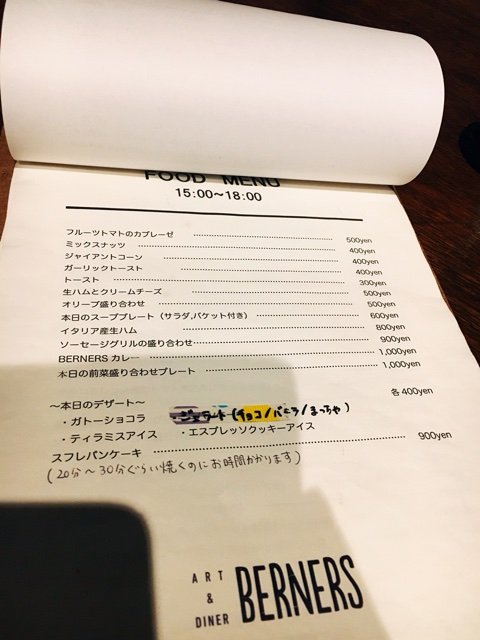 FOOD MENU
15:00〜18:00
フルーツトマトのカプレーゼ 500yen
ミックスナッツ 400yen
ジャイアントコーン 400yen
ガーリックトースト 400yen
トースト 300yen
生ハムとクリームチーズ 500yen
オリーブ盛り合わせ 500yen
本日のスーププレート（サラダ,バケット付き） 600yen
イタリア産生ハム 800yen
ソーセージグリルの盛り合わせ 900yen
BERNERS カレー 1,000yen
本日の前菜盛り合わせプレート 1,000yen
〜本日のデザート〜 各400yen
・ガトーショコラ ジェラート(チョコ/バニラ/まっちゃ)
・ティラミスアイス ・エスプレッソクッキーアイス
スフレパンケーキ 900yen
(20分〜30分ぐらい焼くのにお時間かかります)
ART
&
DINER
BERNERS